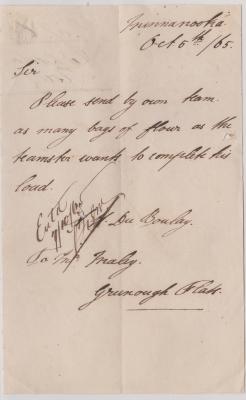 Minnanooka
Oct 5th /65
Sir
Please send by own team
as many bags of flour as the
teamster wants to complete his
load.
Du Boulay.
To Mr Maley.
Greenough Flats.